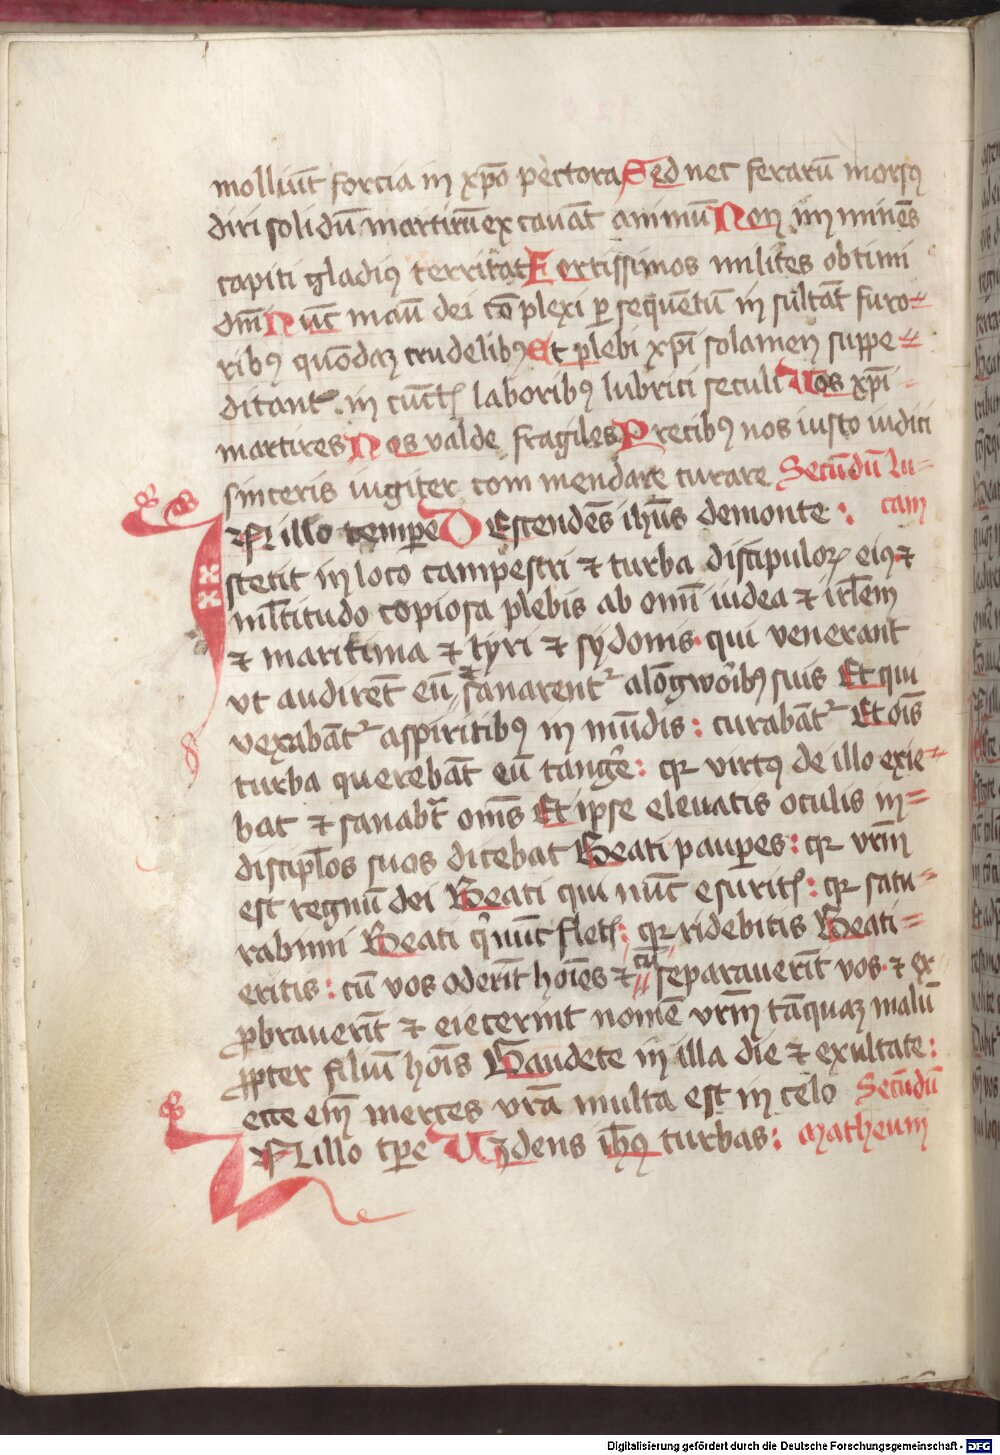 molliūt forcia in xp̄o pectora Sed nec ferarū morsꝯ
diri solidū martirū ex cauāt animū Non im minēs
capiti gladiꝯ territat Fortissimos milites obtimi
dn̄i Nūc manū dei cō plexi per sequētū in sultāt furo-
ribꝯ quōdaꝫ crudelibꝯ Et plebi xp̄i solamen suppe-
ditant in cūctis laboribꝯ lubrici seculi Uos xp̄i
martires Nos valde fragiles Precibꝯ nos iusto iudici
sinceris iugiter com mendare curare Secūdū lu-
cam
N illo tempe DEstendēs ih̄us demonte :
stetit in loco campestri ⁊ turba discipuloꝝ eiꝯ ⁊
ml̄titudo copiosa plebis ab om̄i iudea ⁊ irl̄em
⁊ maritima ⁊ tyri ⁊ sydonis qui venerant
vt audirēt eū ⁊ sanarent᷑ alōgworibꝯ suis Et qui
vexabāt᷑ aspiritibꝯ in mūdis : curabāt᷑ Et oīs
turba querebāt eū tangere : qꝛ virtꝯ de illo exie-
bat ⁊ sanabt᷑ om̄s Et ipse eleuatis oculis in-
discipl̄os suos dicebat Beati pauꝑes : qꝛ vr̄m
est regnū dei Beati qui nūc esuritis : qꝛ satu-
rabimi Beati qi nūc fletis : qꝛ ridebitis Beati-
eritis : cū vos oderīt hoīes ⁊ cū separauerīt vos ⁊ ex
ꝓbrauerīt ⁊ eiecerint nomē vr̄m tāquaꝫ malū
ꝓpter filiū hoīs Gaudete in illa die ⁊ exultate :
ecce em̄ merces vr̄a multa est in celo Secūdū
N illo tꝑe Uidens ih̄ꝯ turbas : matheum
Digitalisierung gefördert durch die Deutsche Forschungsgemeinschaft - DFG